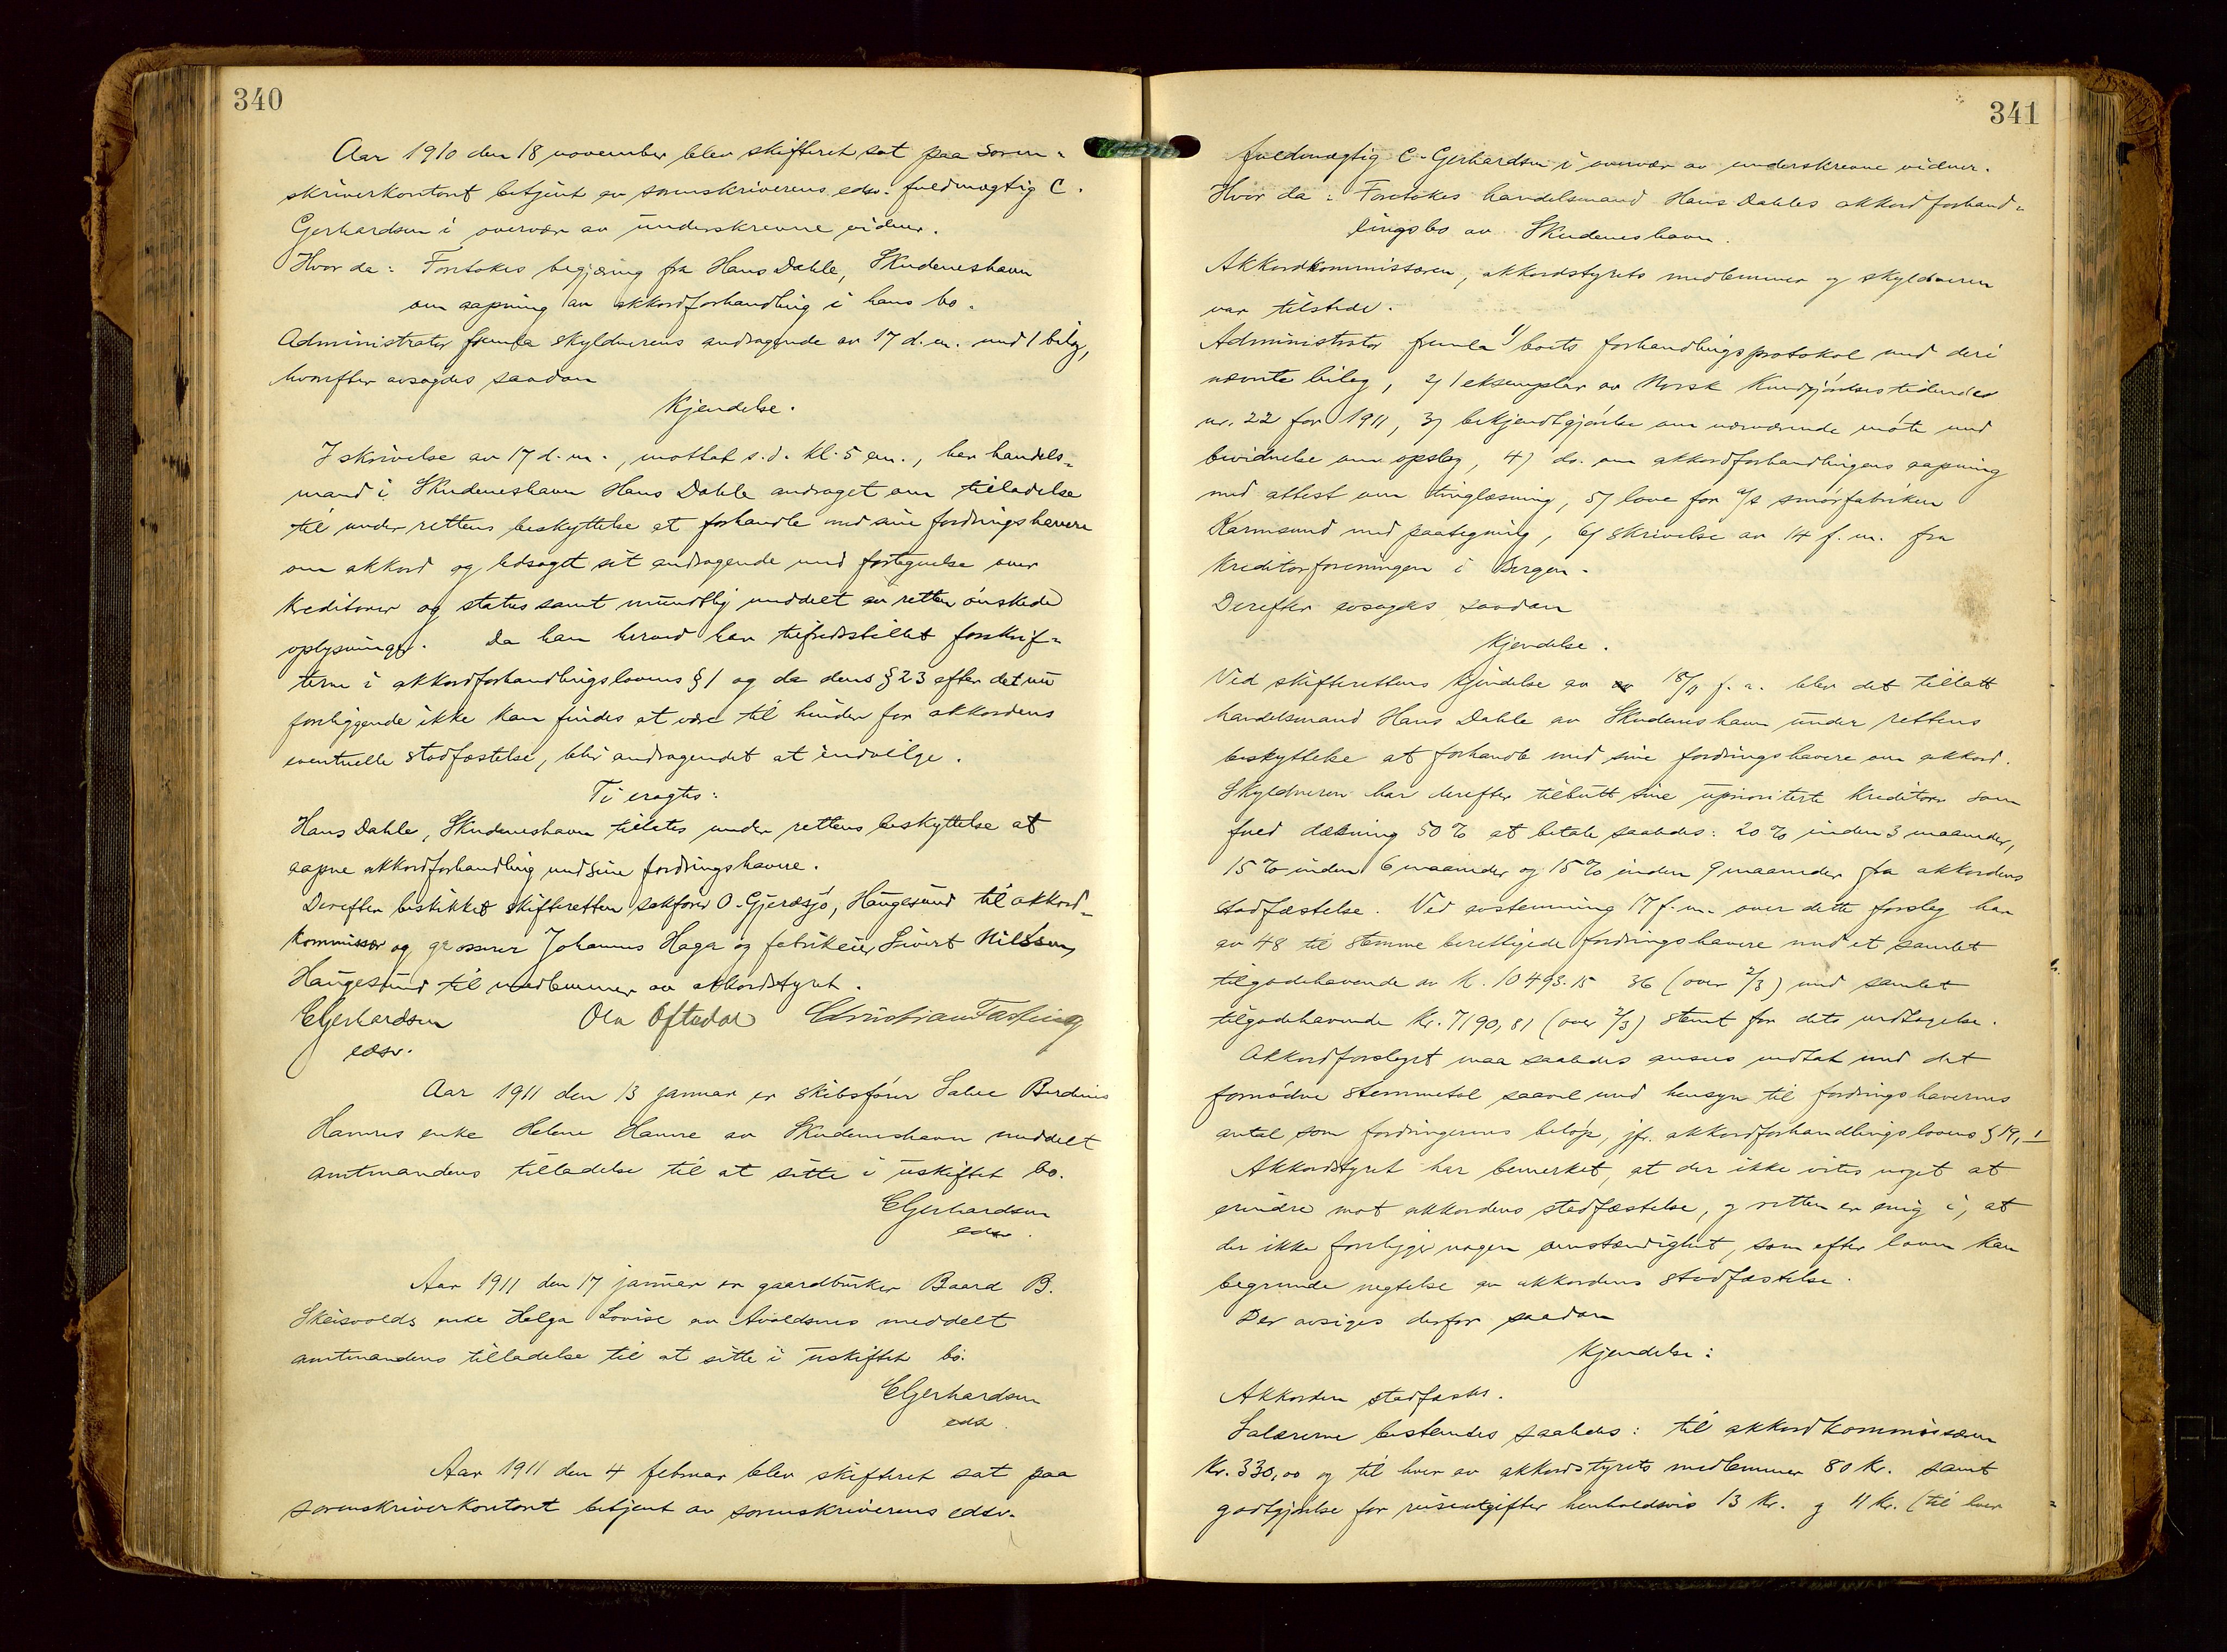 340
Aar 1910 den 18 november blev skifteret sat paa soren-
skriverkontoret betjent av sorenskriverens edsv. fuldmægtig C.
Gerhardsen i overvær av underskrevne vidner.
Hvor da: Foretokes begjæring fra Hans Dahle, Skudeneshavn
om aapning av akkordforhandling i hans bo.
Administrator fremla skyldnerens andragende av 17 d.m. med 1 bilag,
hvorefter avsagdes saadan
Kjendelse.
I skrivelse av 17 d.m., mottat s.d. kl. 5 em., har handels-
mand i Skudeneshavn Hans Dahle andraget om tilladelse
til under rettens beskyttelse at forhandle med sine fordringshavere
om akkord og ledsaget sit andragende med fortegnelse over
kreditorer og status samt mundtlig meddelt av retten ønskede
oplysninger. Da han herved har tilfredsstillet forskrif-
terne i akkordforhandlingslovens § 1 og da dens § 23 efter det nu
foreliggende ikke kan findes at være til hinder for akkordens
eventuelle stadfæstelse, blir andragendet at indvilge.
Ti eragtes:
Hans Dahle, Skudeneshavn tillates under rettens beskyttelse at
aapne akkordforhandling med sine fordringshavere.
Derefter beskikket skifteretten sakfører O. Gjeræsjø, Haugesund til akkord-
kommissær og grosserer Johannes Haga og fabrikeier Sivert Nilssen,
Haugesund til medlemmer av akkordstyret.
CGerhardsen Ola Oftedal Christian Fasting
edsv.
Aar 1911 den 13 januar er skibsfører Salve Berdines
Hamres enke Helene Hamre av Skudeneshavn meddelt
amtmandens tilladelse til at sitte i uskiftet bo.
CGerhardsen
edsv.
Aar 1911 den 17 januar er gaardbruker Baard B.
Skeisvolds enke Helga Lovise av Avaldsnes meddelt
amtmandens tilladelse til at sitte i uskiftet bo.
CGerhardsen
edsv.
Aar 1911 den 4 februar blev skifteret sat paa
sorenskriverkontoret betjent av sorenskriverens edsv.
341
fuldmægtig C. Gerhardsen i overvær av underskrevne vidner.
Hvor da: Foretokes handelsmand Hans Dahles akkordforhand-
lingsbo av Skudeneshavn.
Akkordkommissæren, akkordstyrets medlemmer og skyldneren
var tilstede.
Administrator fremla 1/ boets forhandlingsprotokol med deri
nævnte bilag, 2/ 1 eksemplar av Norsk Kundgjørelsestidende
nr. 22 for 1911, 3/ bekjendtgjørelse om nærværende møte med
bevidnelse om opslag, 4/ do. om akkordforhandlingens aapning
med attest om tinglæsning, 5/ love for a/s smørfabriken
Karmsund med paategning, 6/ skrivelse av 14 f.m. fra
Kreditorforeningen i Bergen.
Derefter avsagdes saadan
Kjendelse.
Ved skifterettens kjendelse av 18/11 f.a. blev det tillatt
handelsmand Hans Dahle av Skudeneshavn under rettens
beskyttelse at forhandle med sine fordringshavere om akkord.
Skyldneren har derefter tilbutt sine upriorterte kreditorer som
fuld dækning 50 % at betale saaledes: 20 % inden 3 maaneder,
15 % inden 6 maaneder og 15 % inden 9 maaneder fra akkordens
stadfæstelse. Ved avstemning 17 f.m. over dette forslag har
av 48 til stemme berettigede fordringshavere med et samlet
tilgodehavende av kr. 10493.15 36 (over 2/3) med samlet
tilgodehavende kr. 7190,81 (over 2/3) stemt for dets vedtagelse.
Akkordforslaget maa saaledes ansees vedtat med det
fornødne stemmetal saavel med hensyn til fordringshavernes
antal som fordringernes beløp, jfr. akkordforhandlingslovens § 19, 1
Akkordstyret har bemerket, at der ikke vites noget at
erindre mot akkordens stadfæstelse, og retten er enig i, at
der ikke foreligger nogen omstændighet, som efter loven kan
begrunde negtelse av akkordens stadfæstelse.
Der avsiges derfor saadan
Kjendelse:
Akkorden stadfæstes.
Salærerne bestemtes saaledes: til akkordkommissæren
kr. 330,00 og til hver av akkordstyrets medlemmer 80 kr. samt
godtgjørelse for reiseutgifter henholdsvis 13 kr. og 11 kr. (til hver